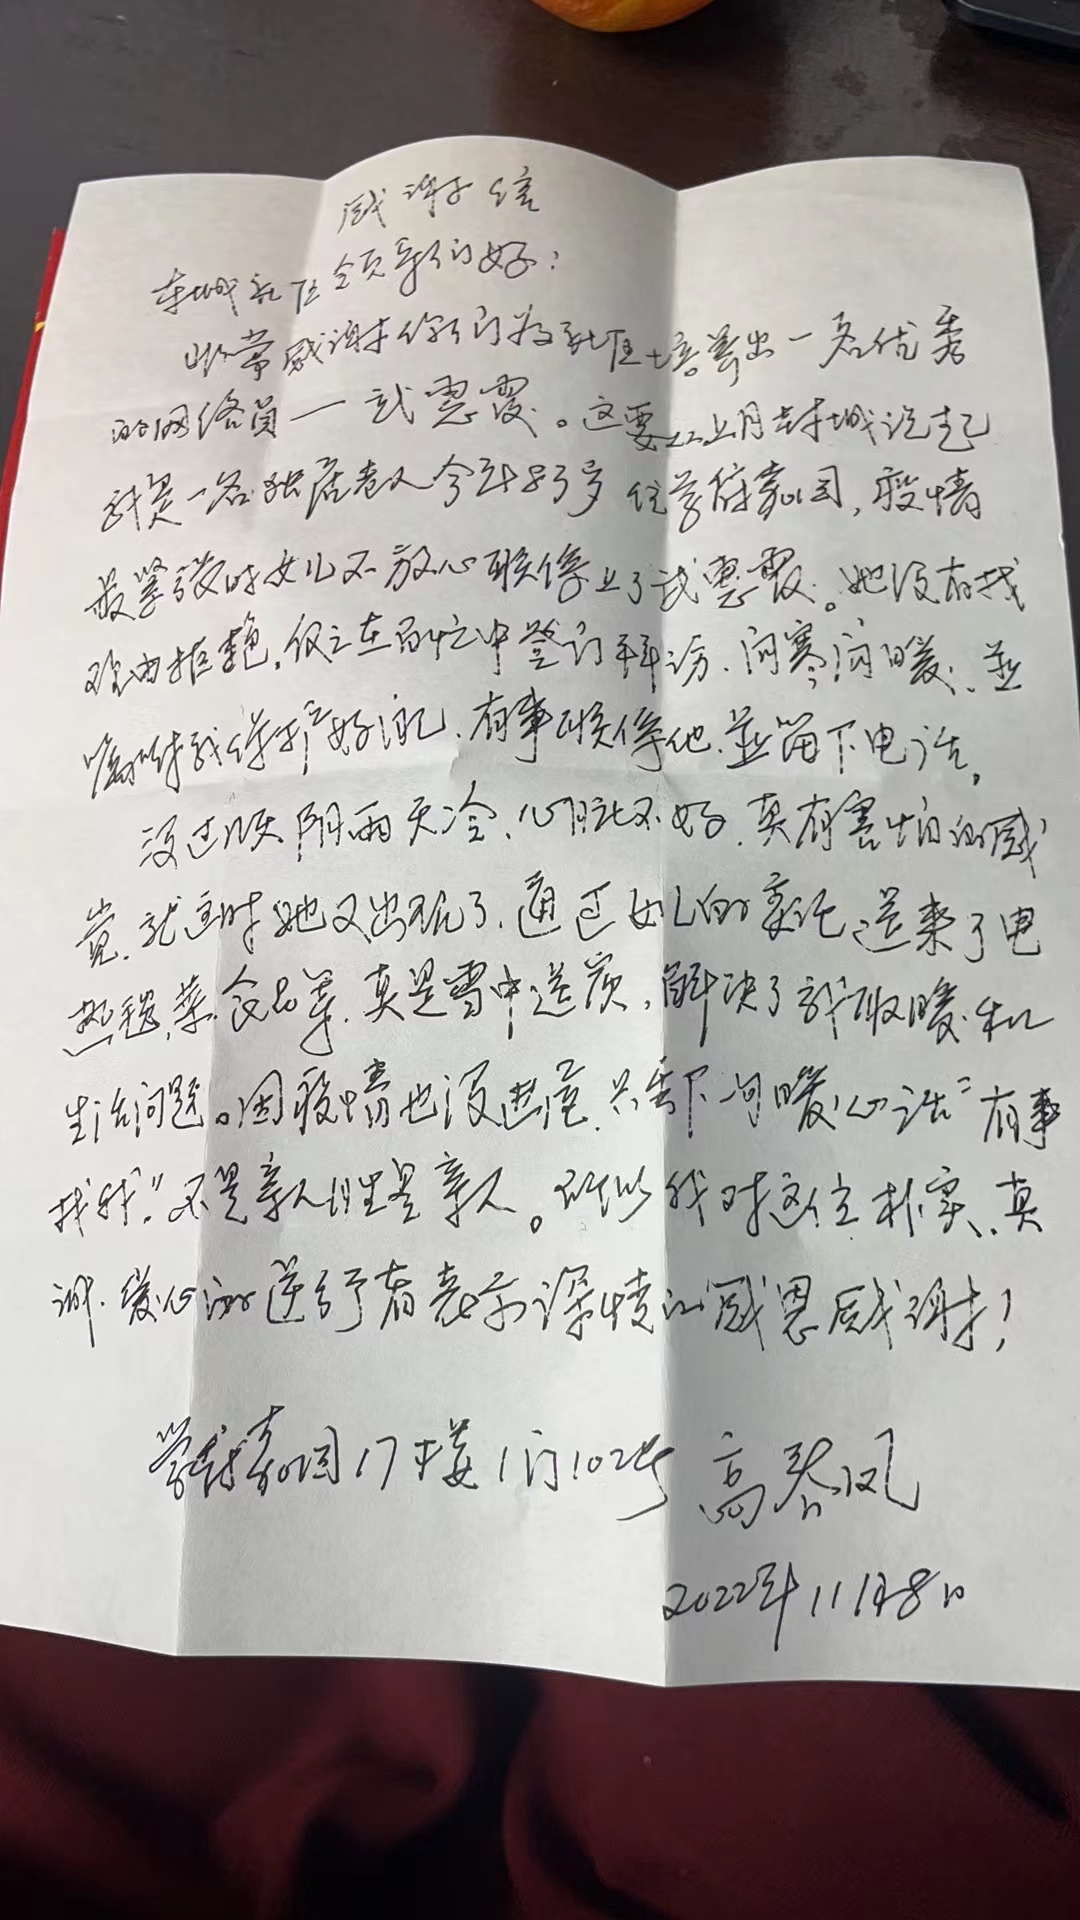 感谢信
东城社区领导们好:
非常感谢你们为社区培养出一名优秀
的网络员—武惠霞。这要从上月封城说起
我是一名独居老人今年83岁住学府嘉园,疫情
最紧张时女儿不放心联系上了武惠霞。她没有找
理由拒绝,仅之在百忙中登门拜访、问寒问暖、並
嘱咐我保护好自己、有事联系他、並留下电话。
没过几天阴雨天冷、心脏不好、真有害怕的感
觉、就这时她又出现了、通过女儿的委托送来了电
热毯、菜、食品等、真是雪中送炭,解决了我取暖和
生活问题。因疫情也没进屋、只丢下一句暖心话"有事
找我"不是亲人胜是亲人。所以我对这位朴实、真
诚、爱心的逆行者表示深情的感恩感谢!
学府嘉园17楼1门102号 高春凤
2022年11月8日